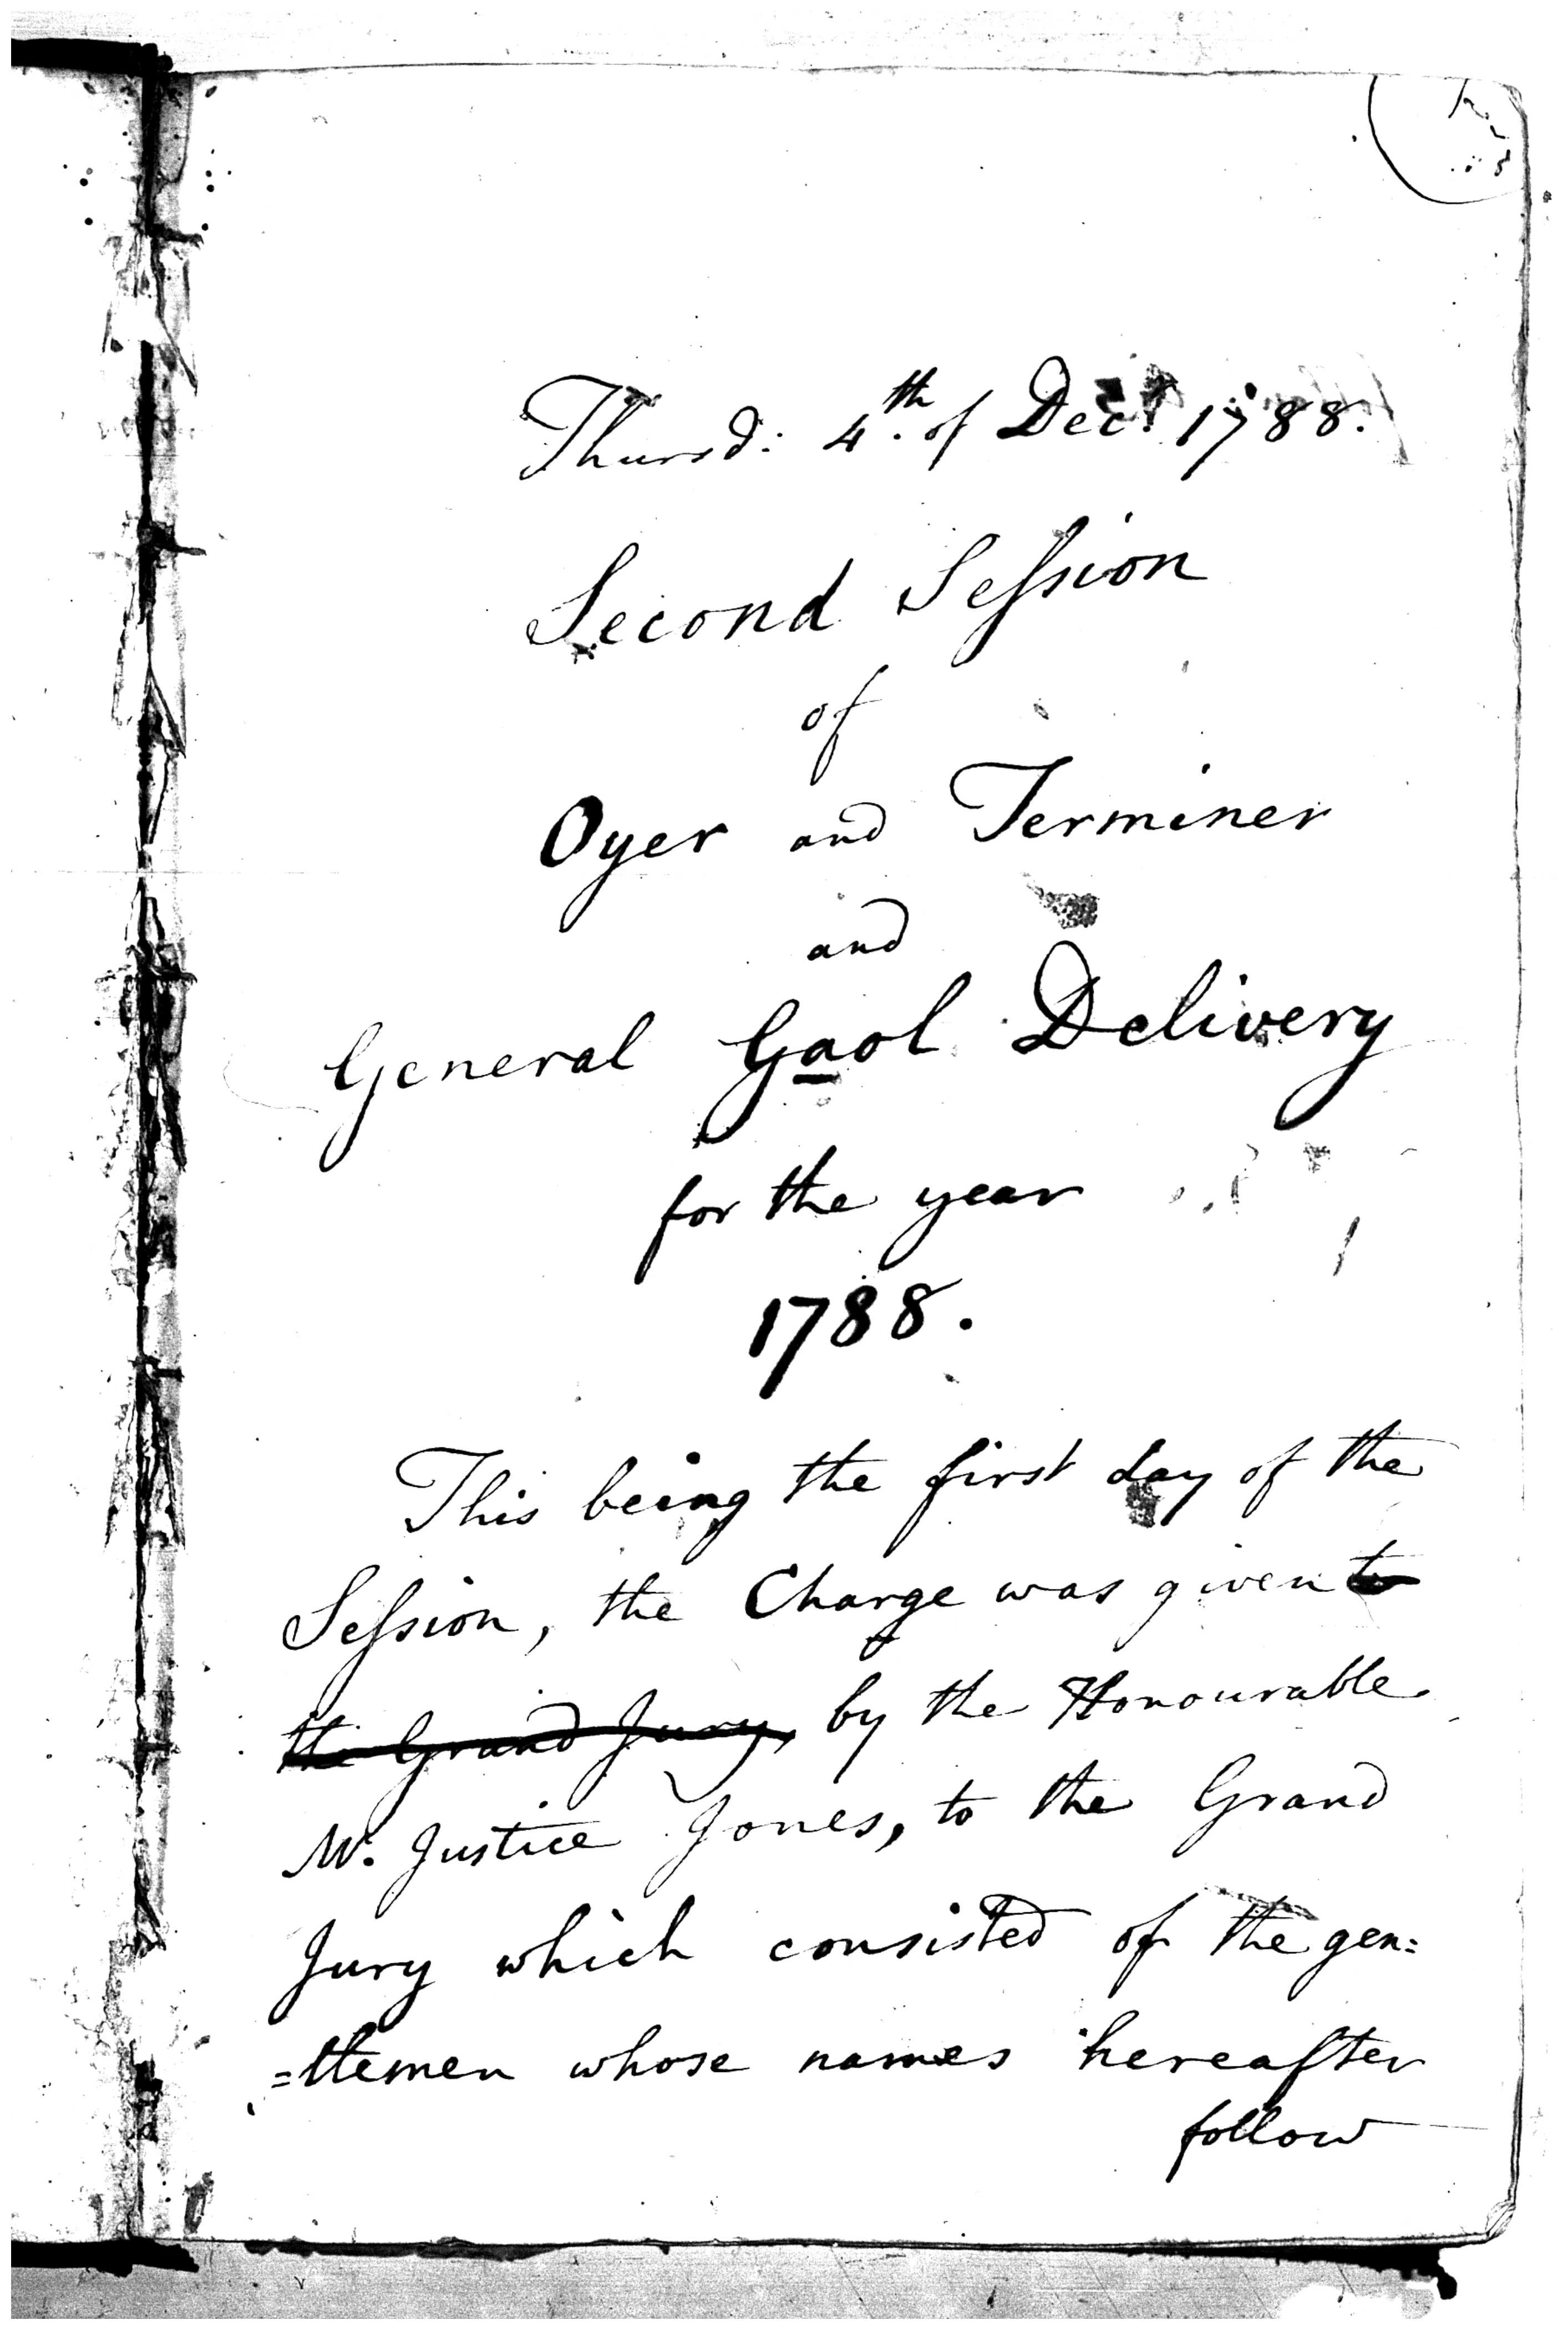 Thursd: 4th. of Decr. 1788.
Second Seſsion
of
Oyer and Terminer
and
General Gaol Delivery
for the year
1788.
This being the first day of the
Seſsion, the Charge was given to
the Grand Jury, by the Honourable
Mr. Justice Jones, to the Grand
Jury which consisted of the gen:
=tlemen whose names hereafter
follow